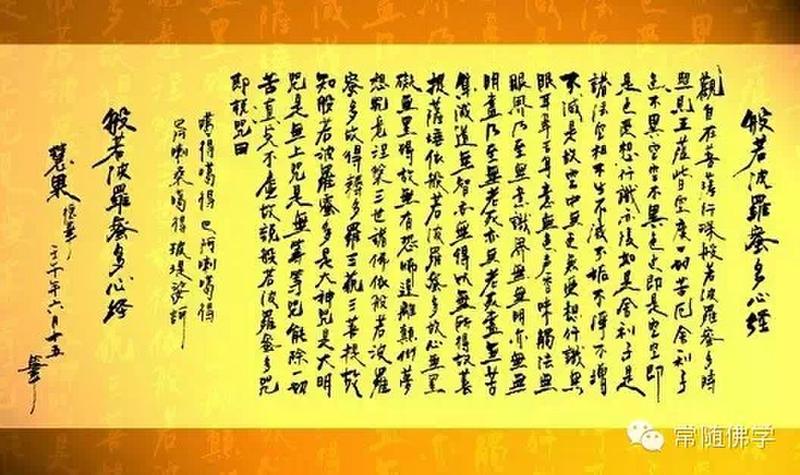 般若波羅蜜多心经
觀自在菩薩行深般若波羅蜜多時
照見五蕴皆空度一切苦厄舍利子
色不異空空不異色色即是空空即
是色受想行識亦復如是舍利子是
諸法空相不生不滅不垢不淨不增
不減是故空中無色無受想行識無
眼耳鼻舌身意無色声香味觸法無
眼界乃至無意識界無無明亦無無
明盡乃至無老死亦無老死盡無苦
集滅道無智亦無得以無所得故菩
提薩埵依般若波羅蜜多故心無罣
礙無罣礙故無有恐怖遠離顛倒夢
想究竟涅槃三世諸佛依般若波羅
蜜多故得耨多羅三藐三菩提故
知般若波羅蜜多是大神咒是大明
咒是無上咒是無等等咒能除一切
苦真实不虛故說般若波羅蜜多咒
即說咒曰
揭得揭得 波
般若波羅蜜多心经
慧果
年六月十五
常随佛学